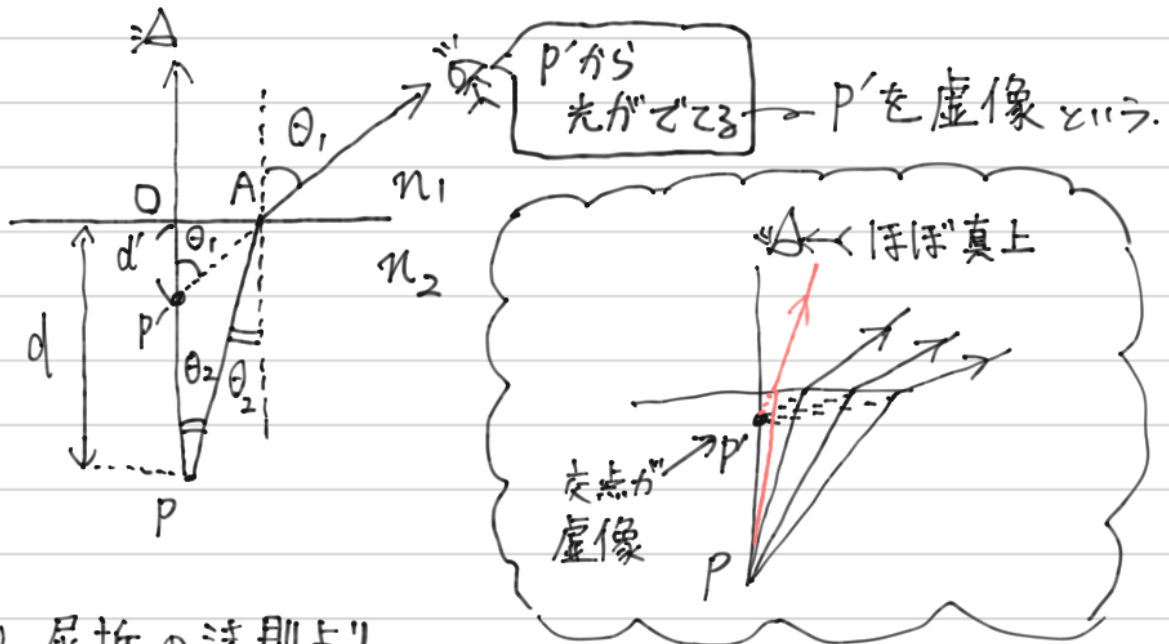 P'から
光がでてる
P'を虚像という.
θ₁
O
A
n₁
d'
θ₁
n₂
d
P'
θ₂
θ₂
P
ほぼ真上
P'
交点が
虚像
P
屈折の法則より